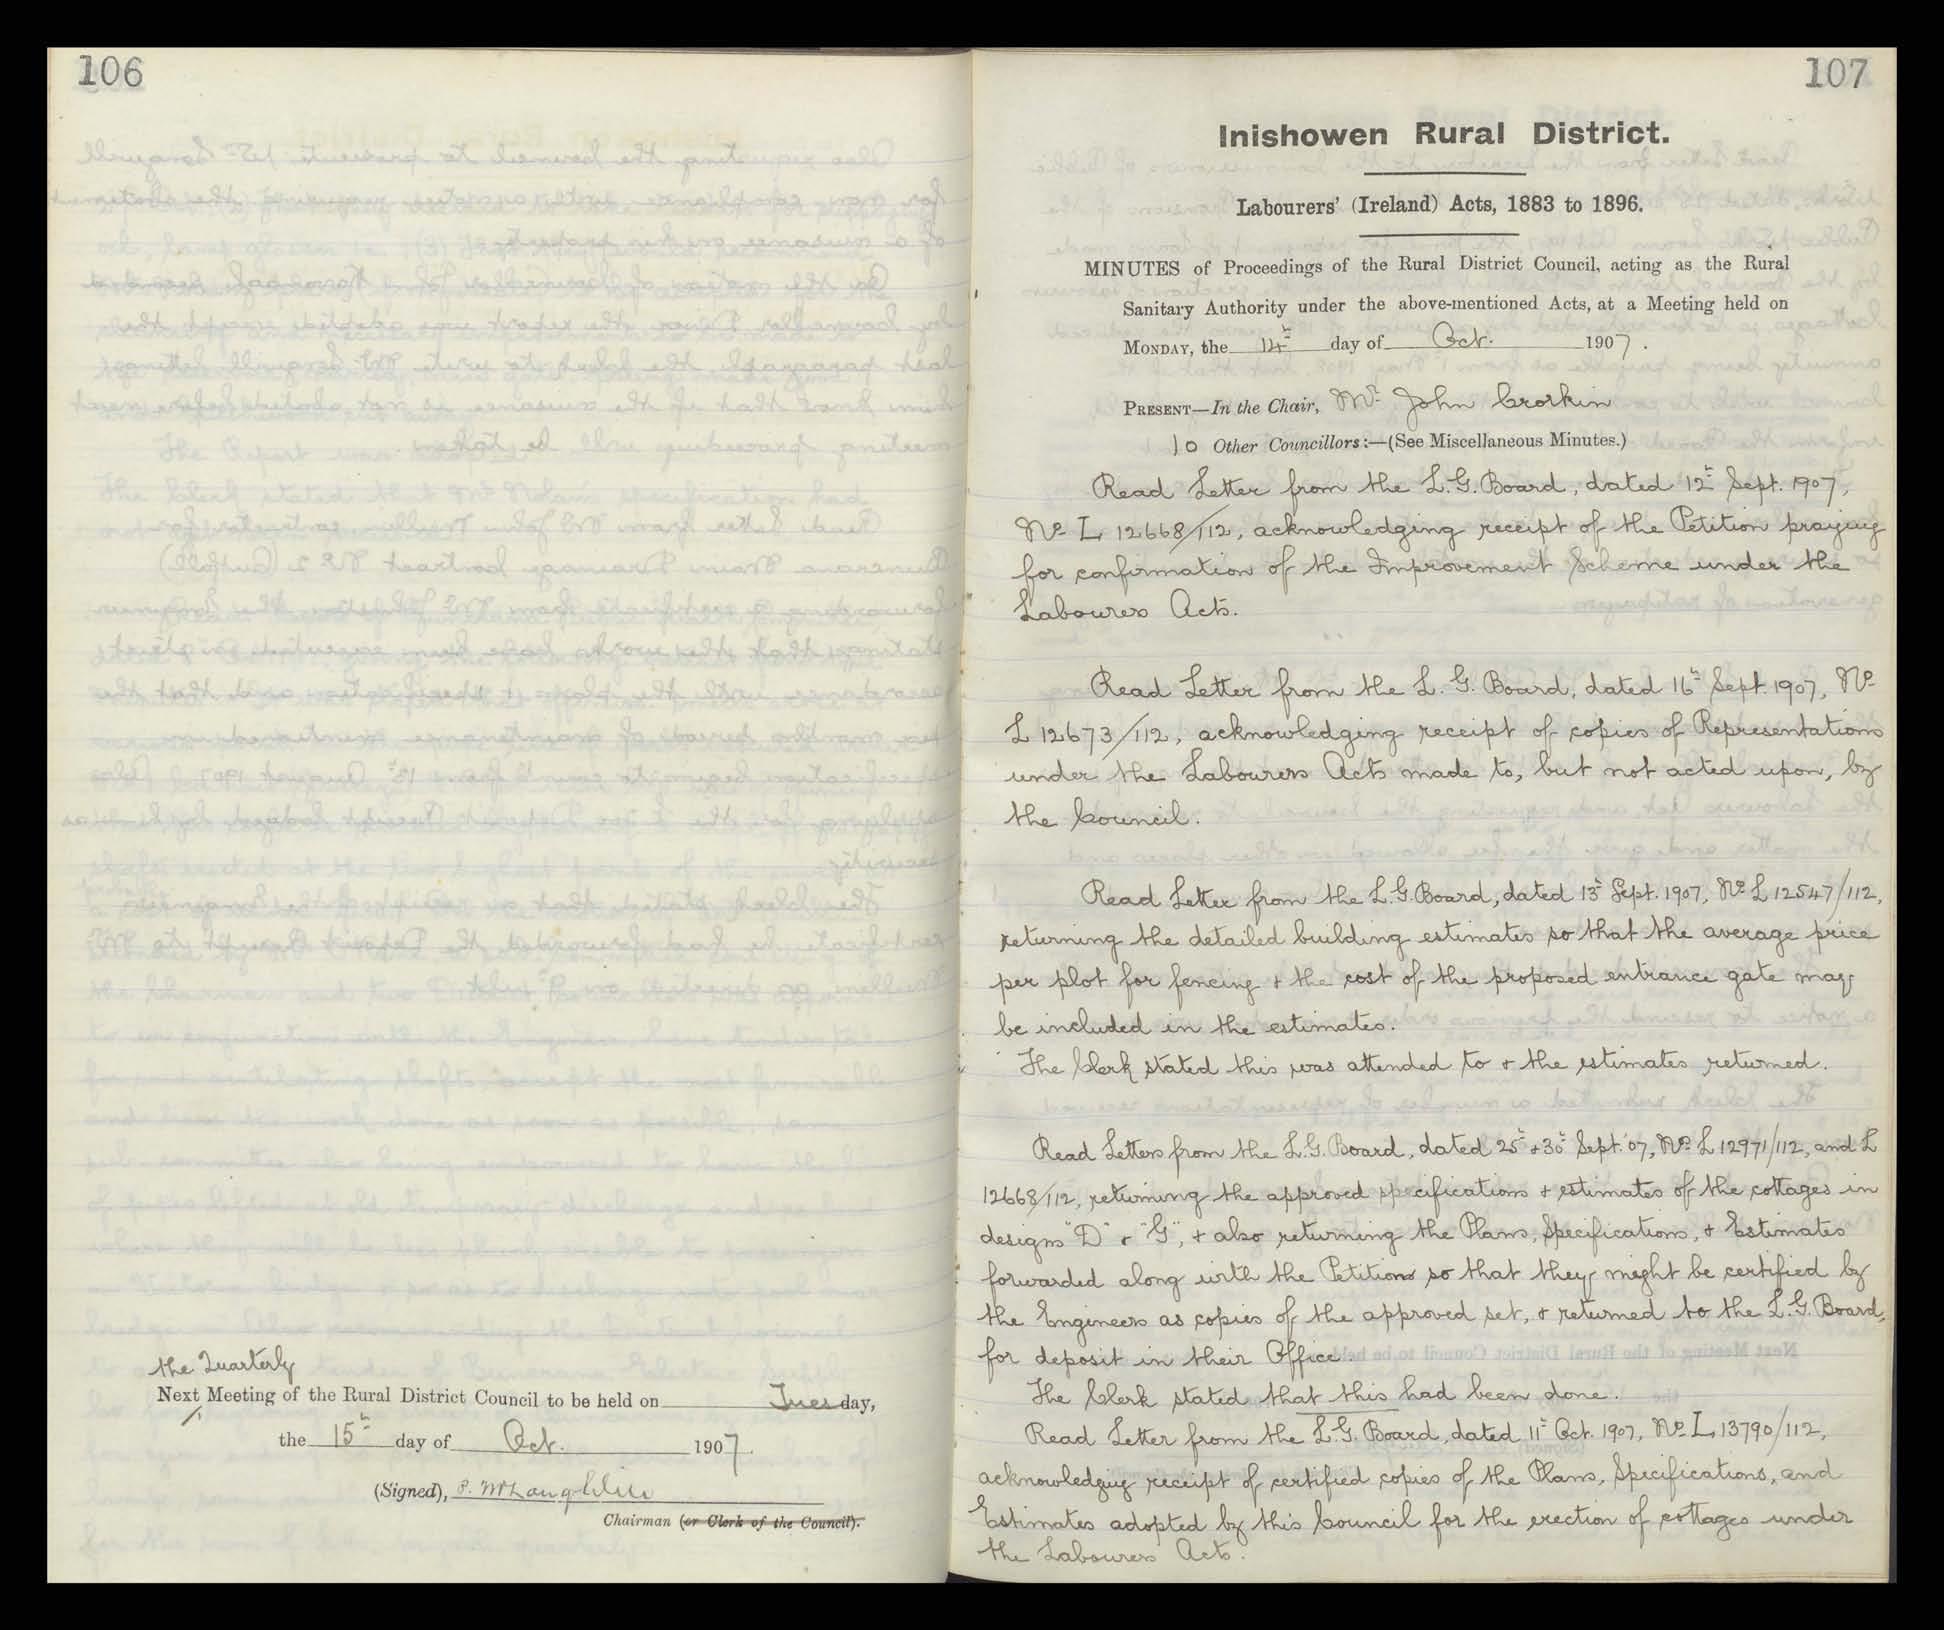 106
the Quarterly
Next Meeting of the Rural District Council to be held on Tuesday,
the 15th day of Oct. 1907.
(Signed), P. McLaughlin
Chairman (or Clerk of the Council).
107
Inishowen Rural District.
Labourers' (Ireland) Acts, 1883 to 1896.
MINUTES of Proceedings of the Rural District Council, acting as the Rural
Sanitary Authority under the above-mentioned Acts, at a Meeting held on
MONDAY, the 14th day of Oct. 1907.
PRESENT—In the Chair, Mr. John Crorkin
10 Other Councillors:—(See Miscellaneous Minutes.)
Read Letter from the L.G. Board, dated 12th Sept. 1907,
No L 12668/112, acknowledging receipt of the Petition praying
for confirmation of the Improvement Scheme under the
Labourers Acts.
Read Letter from the L.G. Board, dated 16th Sept. 1907, No
L 12673/112, acknowledging receipt of copies of Representations
under the Labourers Acts made to, but not acted upon, by
the Council.
Read Letter from the L.G. Board, dated 13th Sept. 1907, No L 12547/112,
returning the detailed building estimates so that the average price
per plot for fencing & the cost of the proposed entrance gate may
be included in the estimates.
The Clerk stated this was attended to & the estimates returned.
Read Letters from the L.G. Board, dated 25th & 30th Sept. '07, No L 12971/112, and L
12668/112, returning the approved specifications & estimates of the cottages in
designs "D" & "G", & also returning the Plans, Specifications, & Estimates
forwarded along with the Petition so that they might be certified by
the Engineers as copies of the approved set, & returned to the L.G. Board,
for deposit in their Office.
The Clerk stated that this had been done.
Read Letter from the L.G. Board, dated 11th Oct. 1907, No L 13790/112,
acknowledging receipt of certified copies of the Plans, Specifications, and
Estimates adopted by this Council for the erection of cottages under
the Labourers Acts.